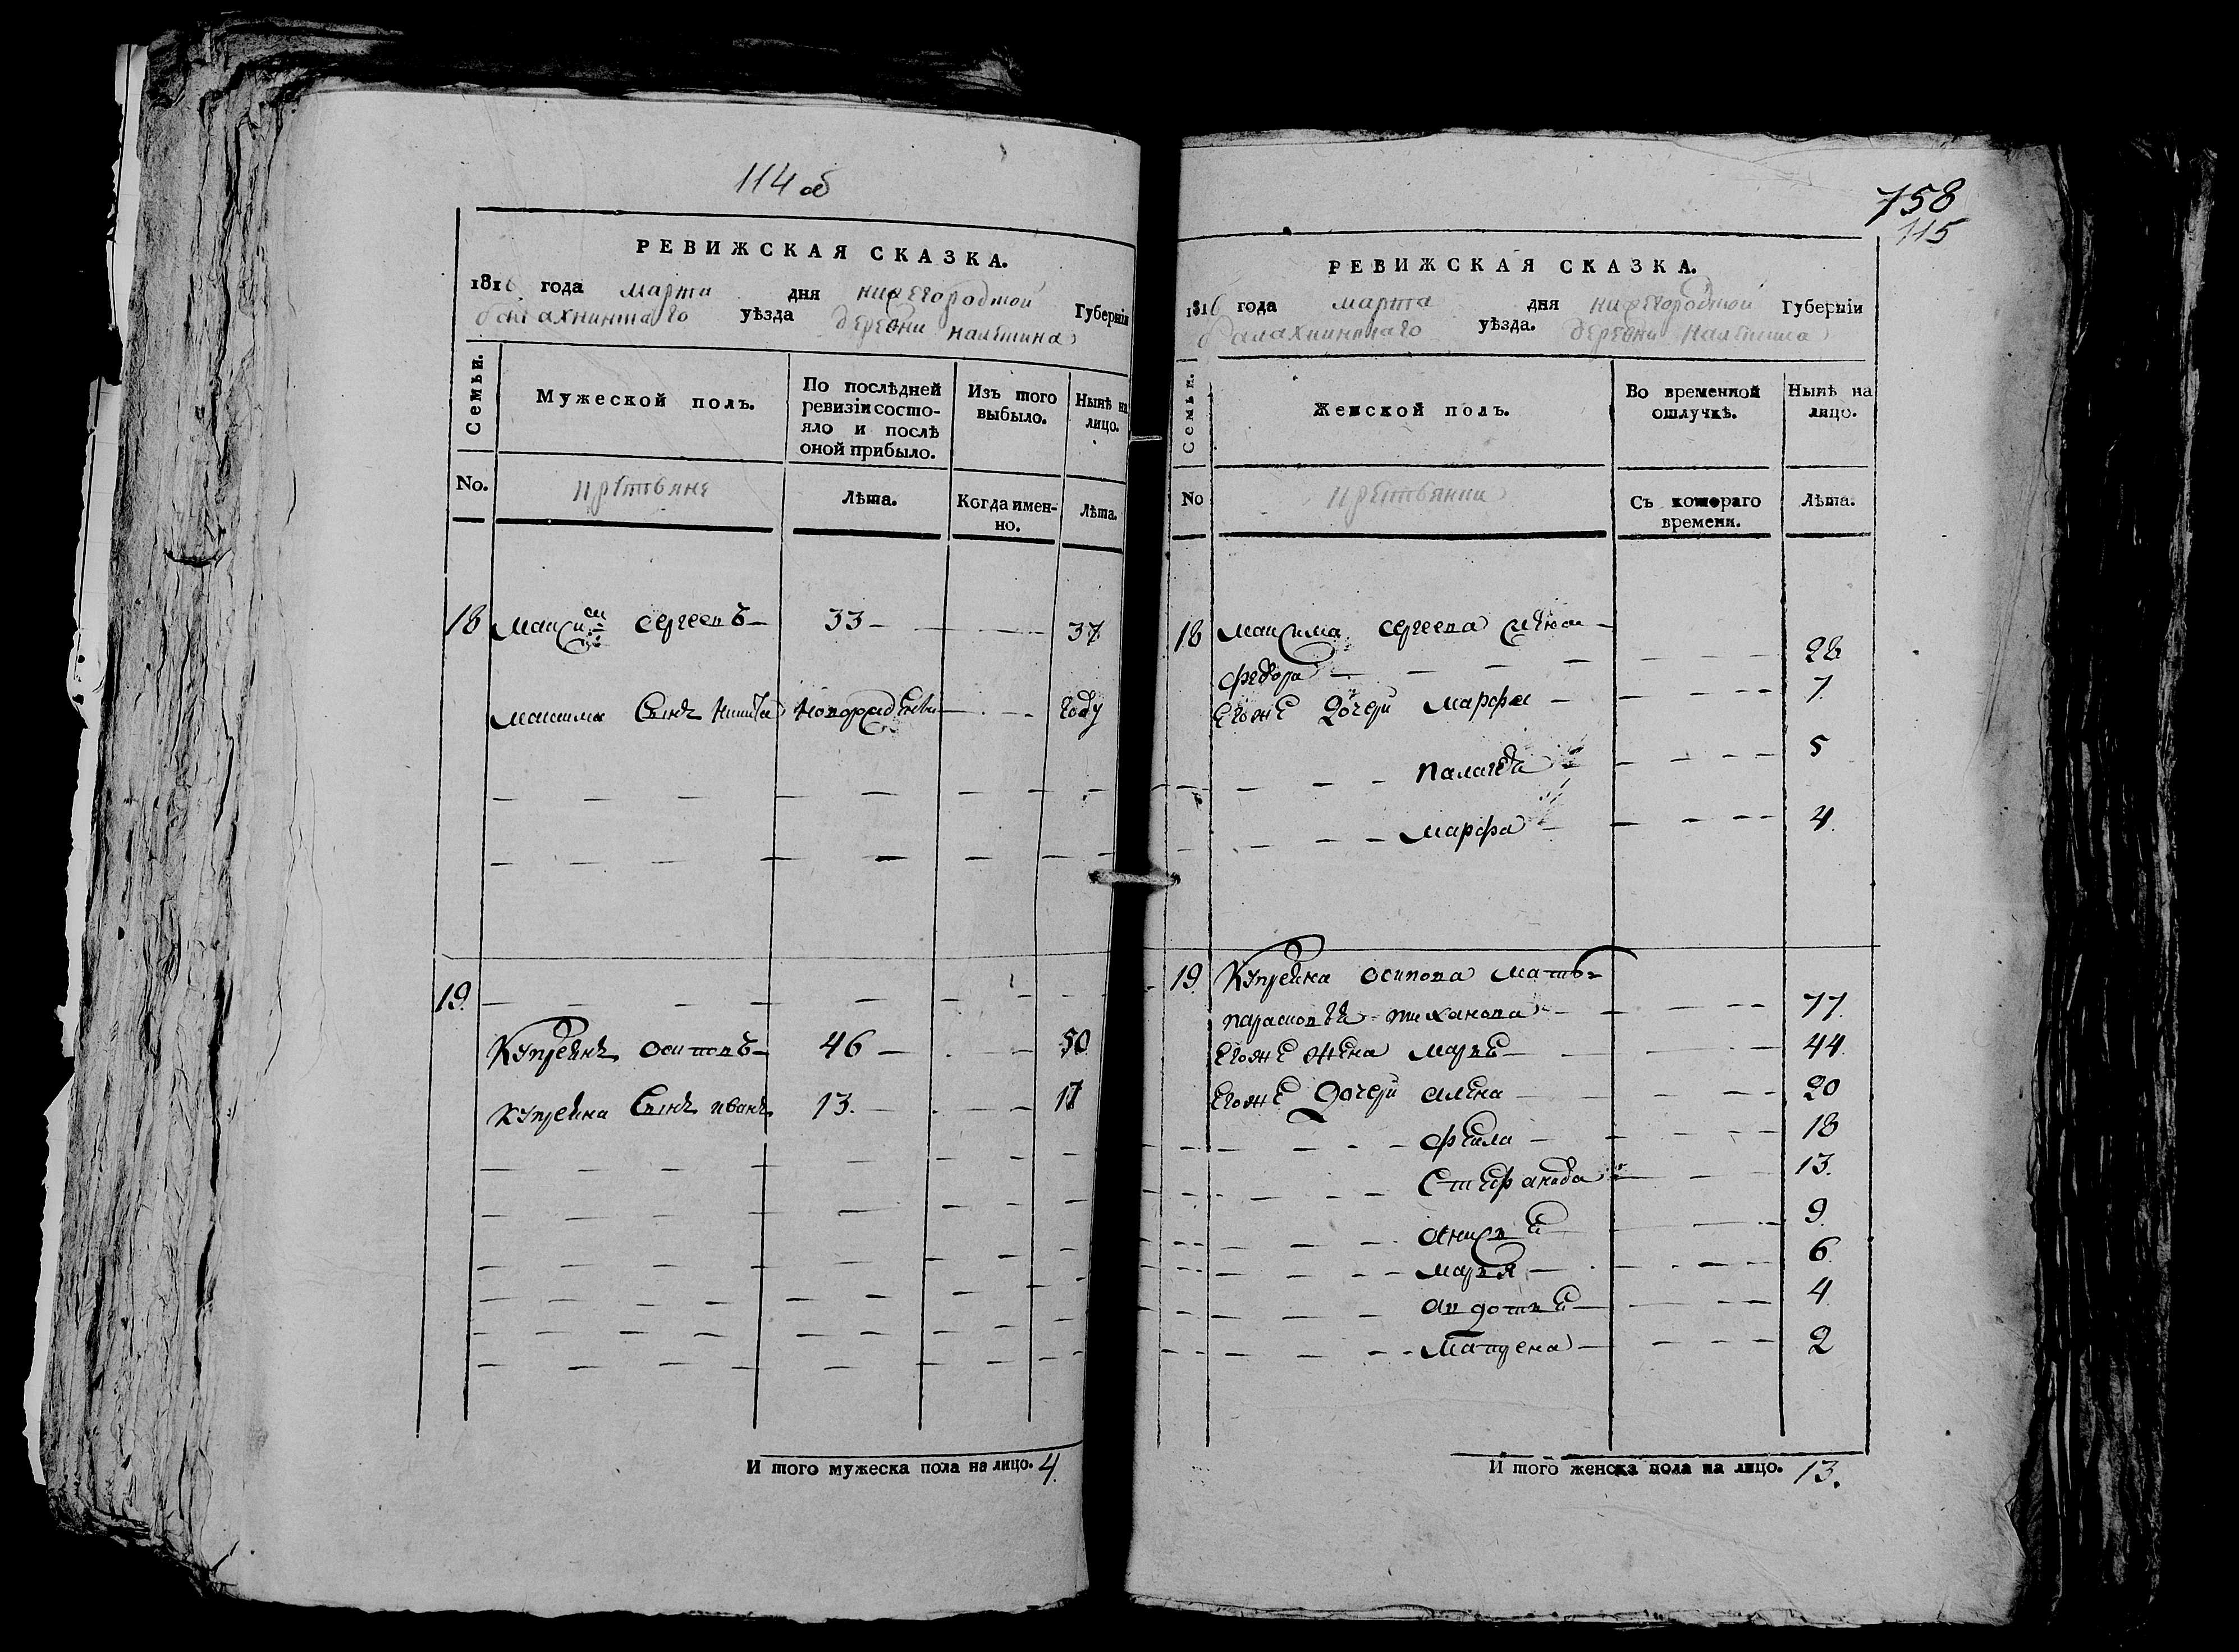 114 об
РЕВИЖСКАЯ СКАЗКА.
1816 года марта дня нижегородской Губерніи
балахнинскаго уѣзда деревни
Семьи.
Мужеской полъ.
По послѣдней ревизіи состо-
яло и послѣ
оной прибыло.
Изъ того
выбыло.
Нынѣ на
лицо.
No.
крестьяне
Лѣта.
Когда имен-
но.
Лѣта.
18 Максим сергеевъ 33 37
максима сынъ никита новорожденны году
19
Купреянъ осиповъ 46 50
купреяна сынъ иванъ 13. 17
И того мужеска пола на лицо. 4.
758
115
РЕВИЖСКАЯ СКАЗКА.
1816 года марта дня нижегородской Губерніи
балахнинскаго уѣзда. деревни
Семьи.
Женской полъ.
Во временной
отлучкѣ.
Нынѣ на
лицо.
No
Съ котораго
времени.
Лѣта.
18 максима сергеева
федора 28
Егоже дочери марфа 7
палагея 5
марфа 4.
19. Купреяна осипова мать
парасковья тиханова 77.
Егоже жена марья 44.
Егоже дочери алена 20
фекла 18
Стефанида 13.
анисья 9.
марья 6.
авдотья 4.
Матрена 2
И того женска пола на лицо. 13.